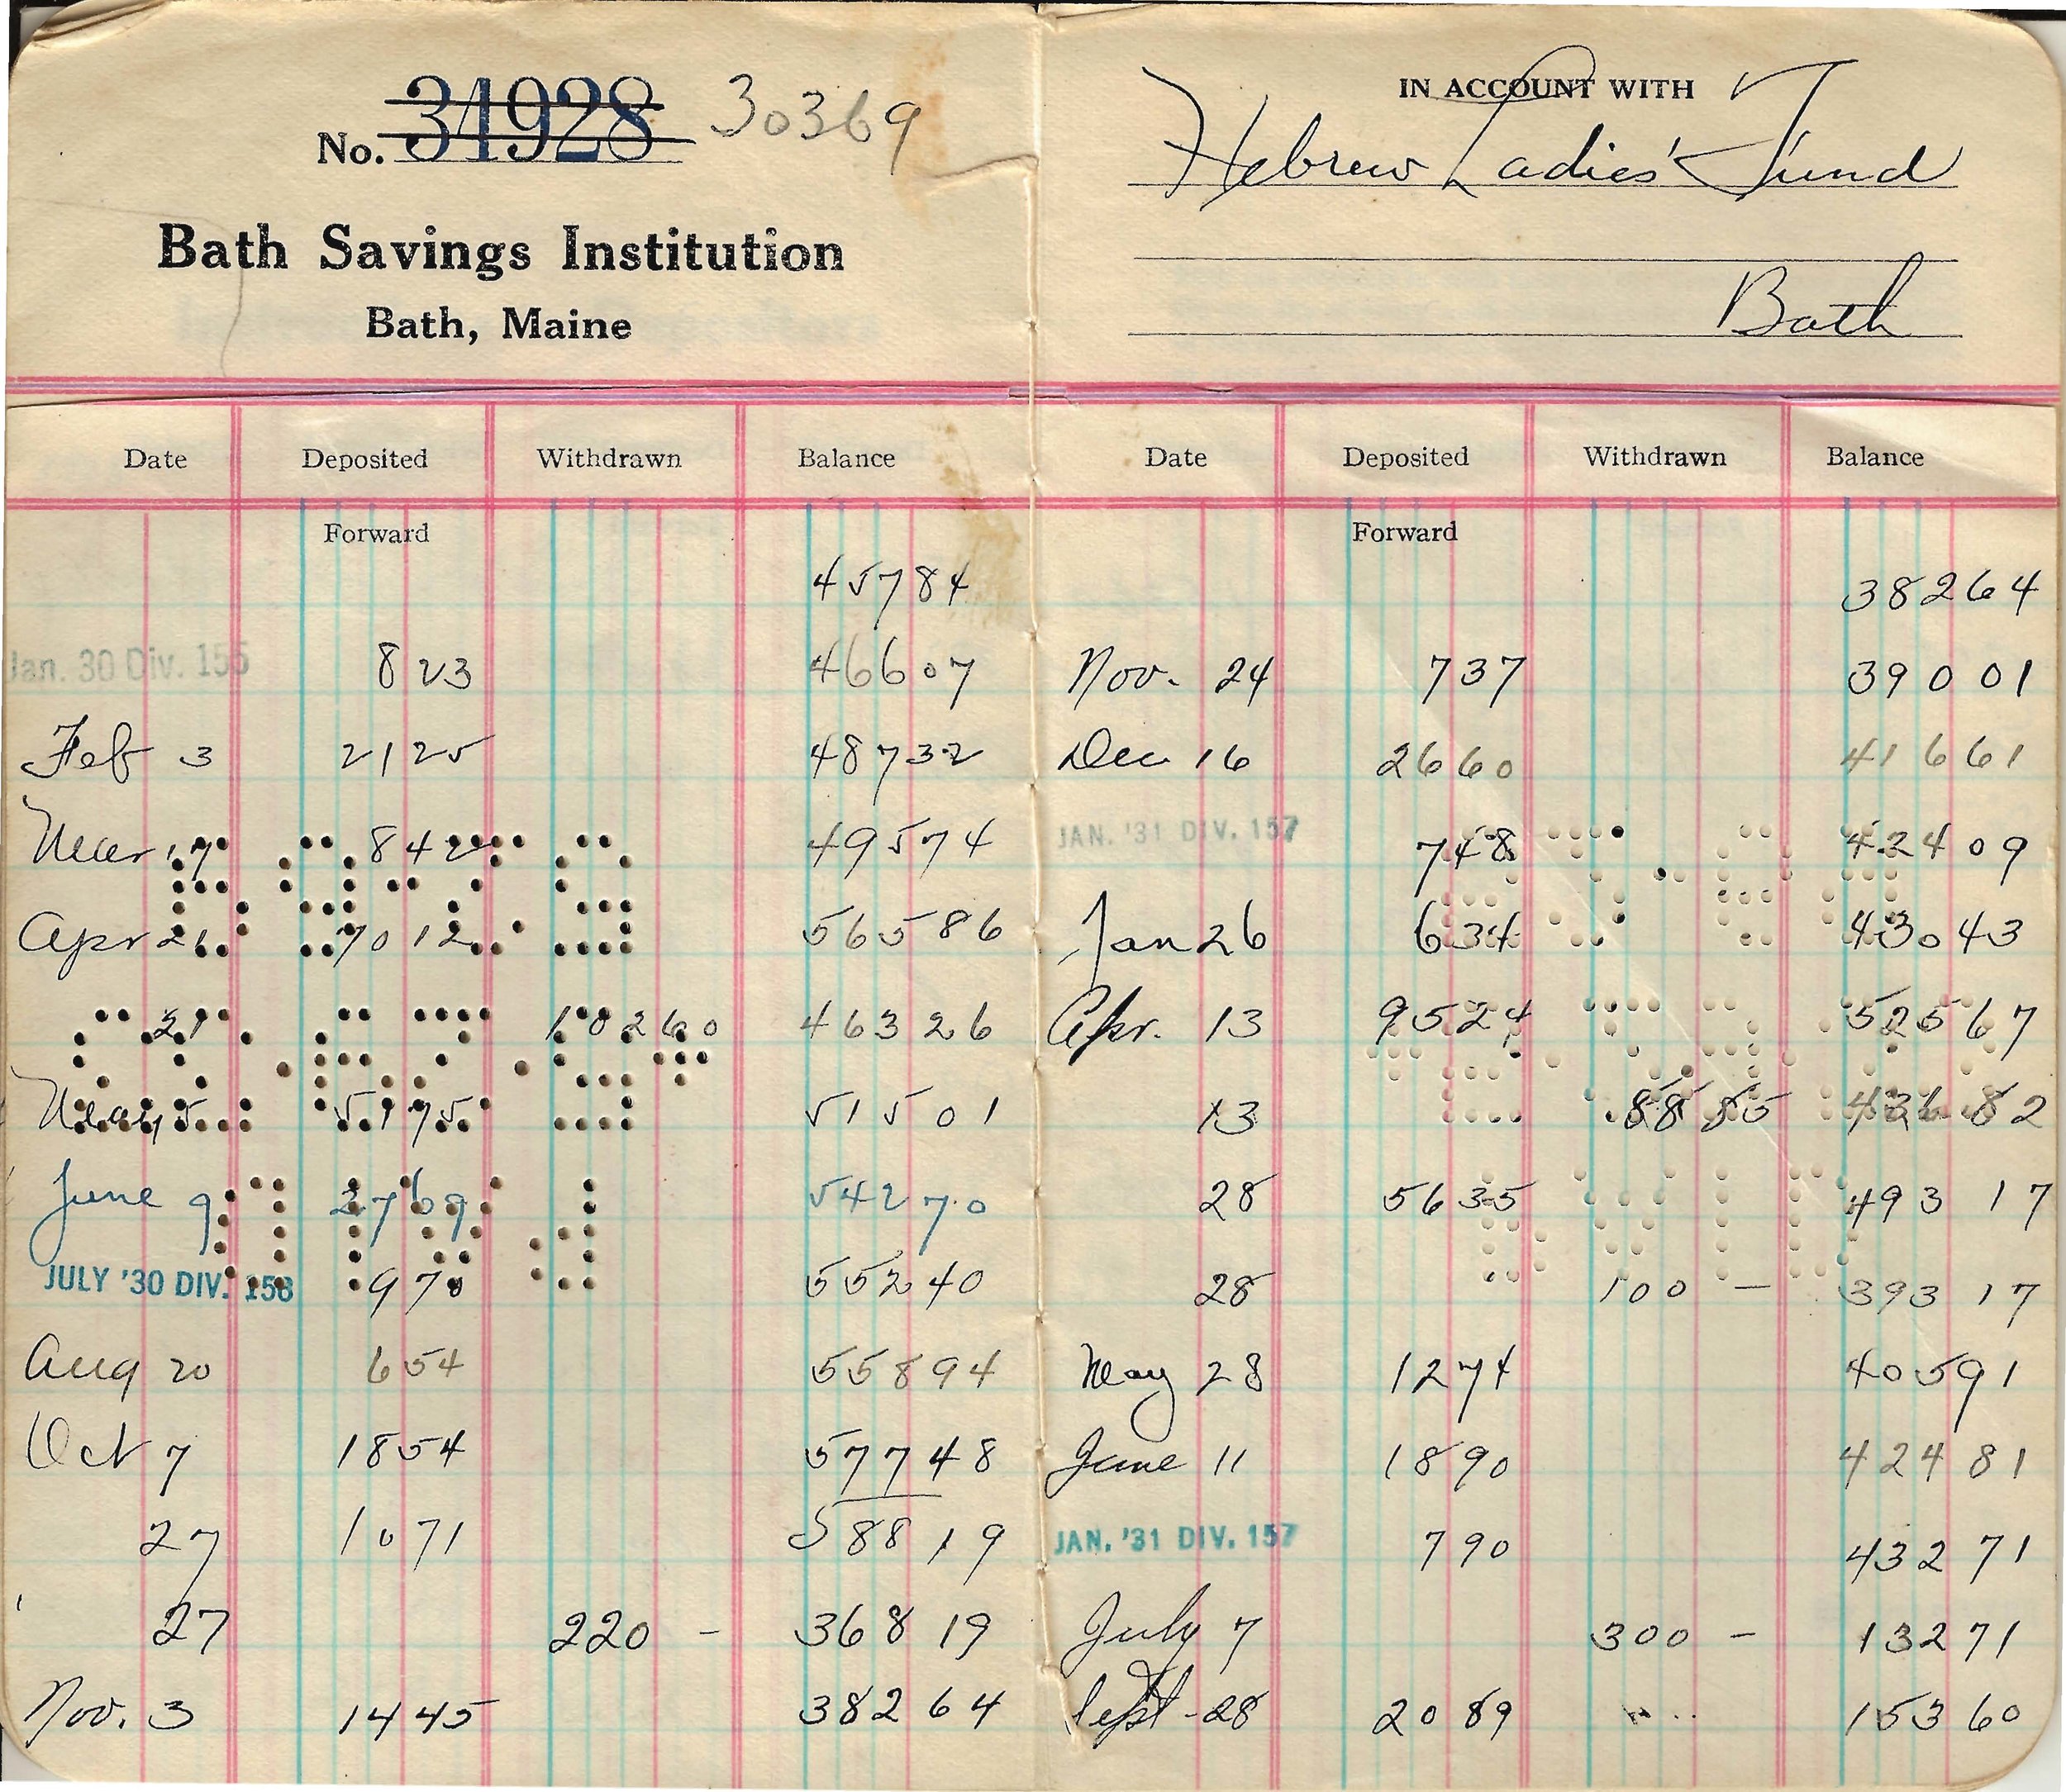 No. 34928 30369
Bath Savings Institution
Bath, Maine
Date Deposited Withdrawn Balance
Forward
457 84
Jan. 30 Div. 155 8 23 466 07
Feb 3 21 25 487 32
Mar 17 8 42 495 74
Apr 21 70 12 565 86
21 102 60 463 26
May 5 51 75 515 01
June 9 27 69 542 70
JULY '30 DIV. 156 9 70 552 40
Aug 20 6 54 558 94
Oct 7 18 54 577 48
27 10 71 588 19
27 220 - 368 19
Nov. 3 14 45 382 64
IN ACCOUNT WITH
Hebrew Ladies' Fund
Bath
Date Deposited Withdrawn Balance
Forward
382 64
Nov. 24 7 37 390 01
Dec 16 26 60 416 61
JAN. '31 DIV. 157 7 48 424 09
Jan 26 6 34 430 43
Apr. 13 95 24 525 67
13 88 85 436 82
28 56 35 493 17
28 100 - 393 17
May 28 12 74 405 91
June 11 18 90 424 81
JAN. '31 DIV. 157 7 90 432 71
July 7 300 - 132 71
Sept - 28 20 89 153 60